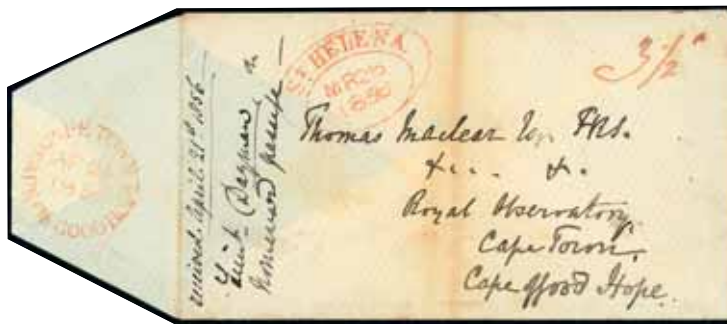 CAPE TOWN
CAPE OF GOOD HOPE
received. April. 21st 1856
Lieut. (Dayman) on
homeward passage
ST HELENA
MR 25
1856
3½
Thomas Maclear Esq FRS.
&c.. &.
Royal Observatory
Cape Town.
Cape of Good Hope.